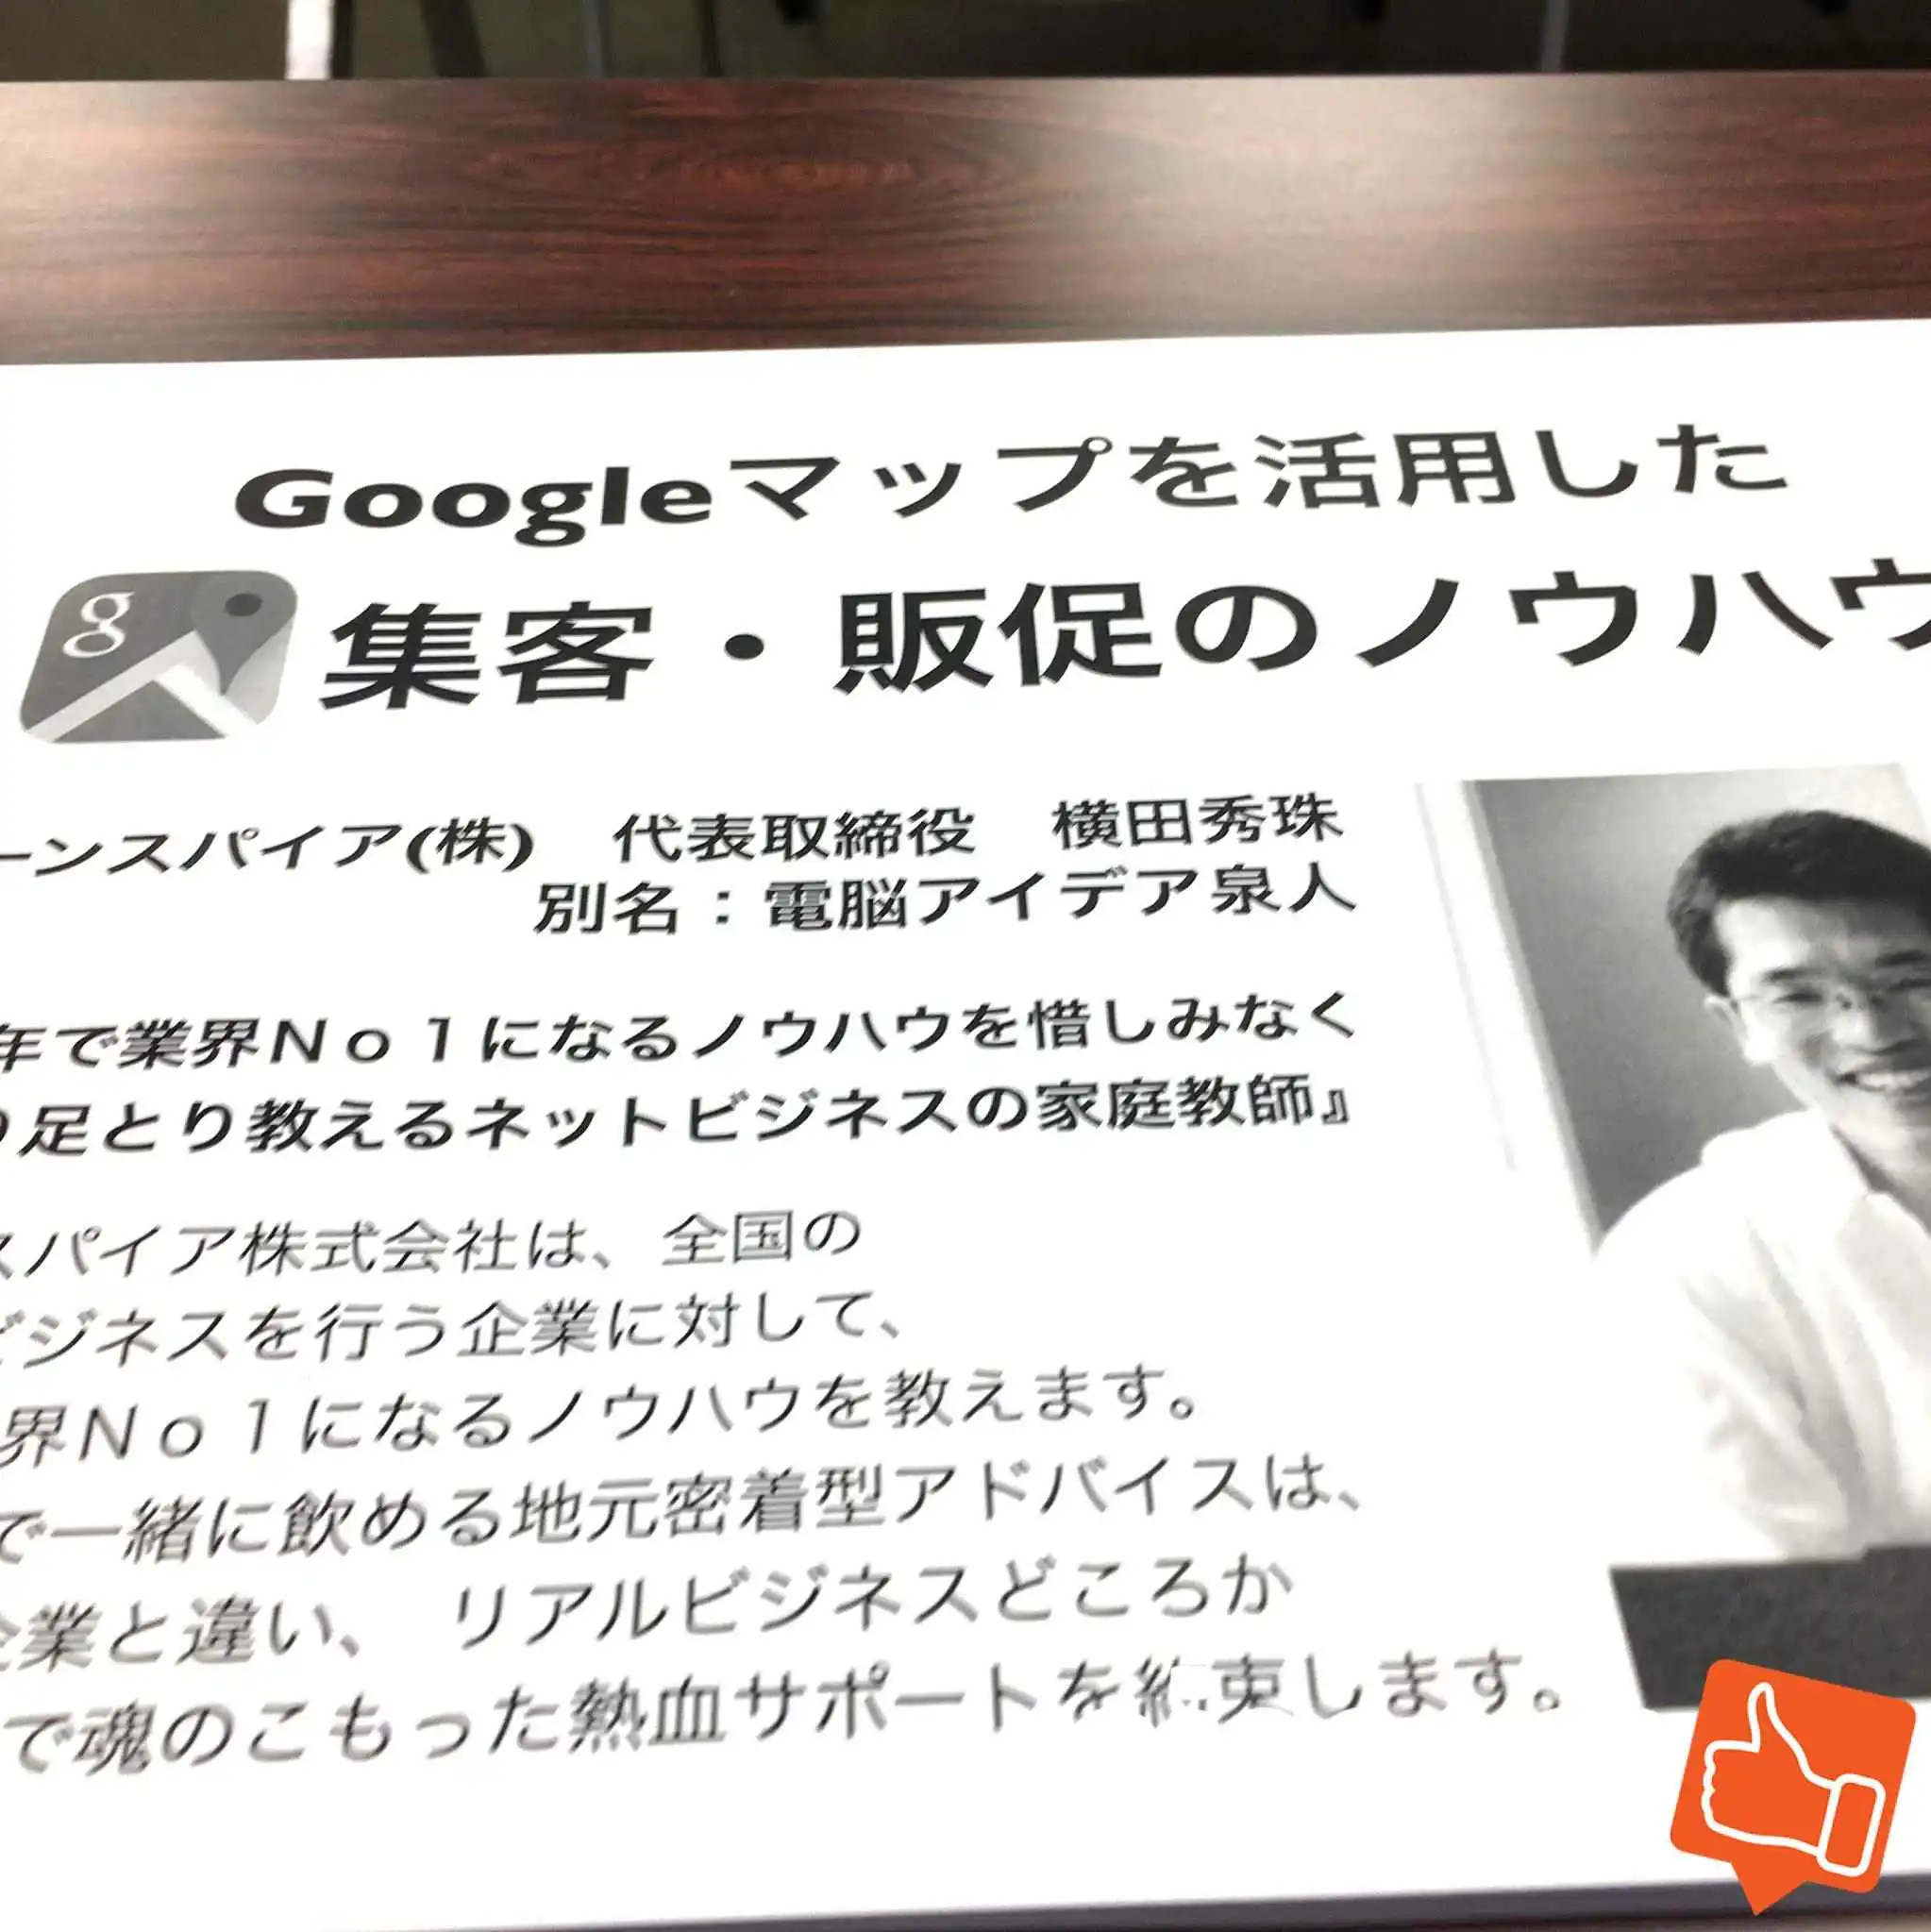 Googleマップを活用した
g
集客・販促のノウハウ
ーンスパイア(株) 代表取締役 横田秀珠
別名：電脳アイデア泉人
年で業界No1になるノウハウを惜しみなく
り足とり教えるネットビジネスの家庭教師』
スパイア株式会社は、全国の
ビジネスを行う企業に対して、
界No1になるノウハウを教えます。
で一緒に飲める地元密着型アドバイスは、
企業と違い、 リアルビジネスどころか
で魂のこもった熱血サポートを約束します。